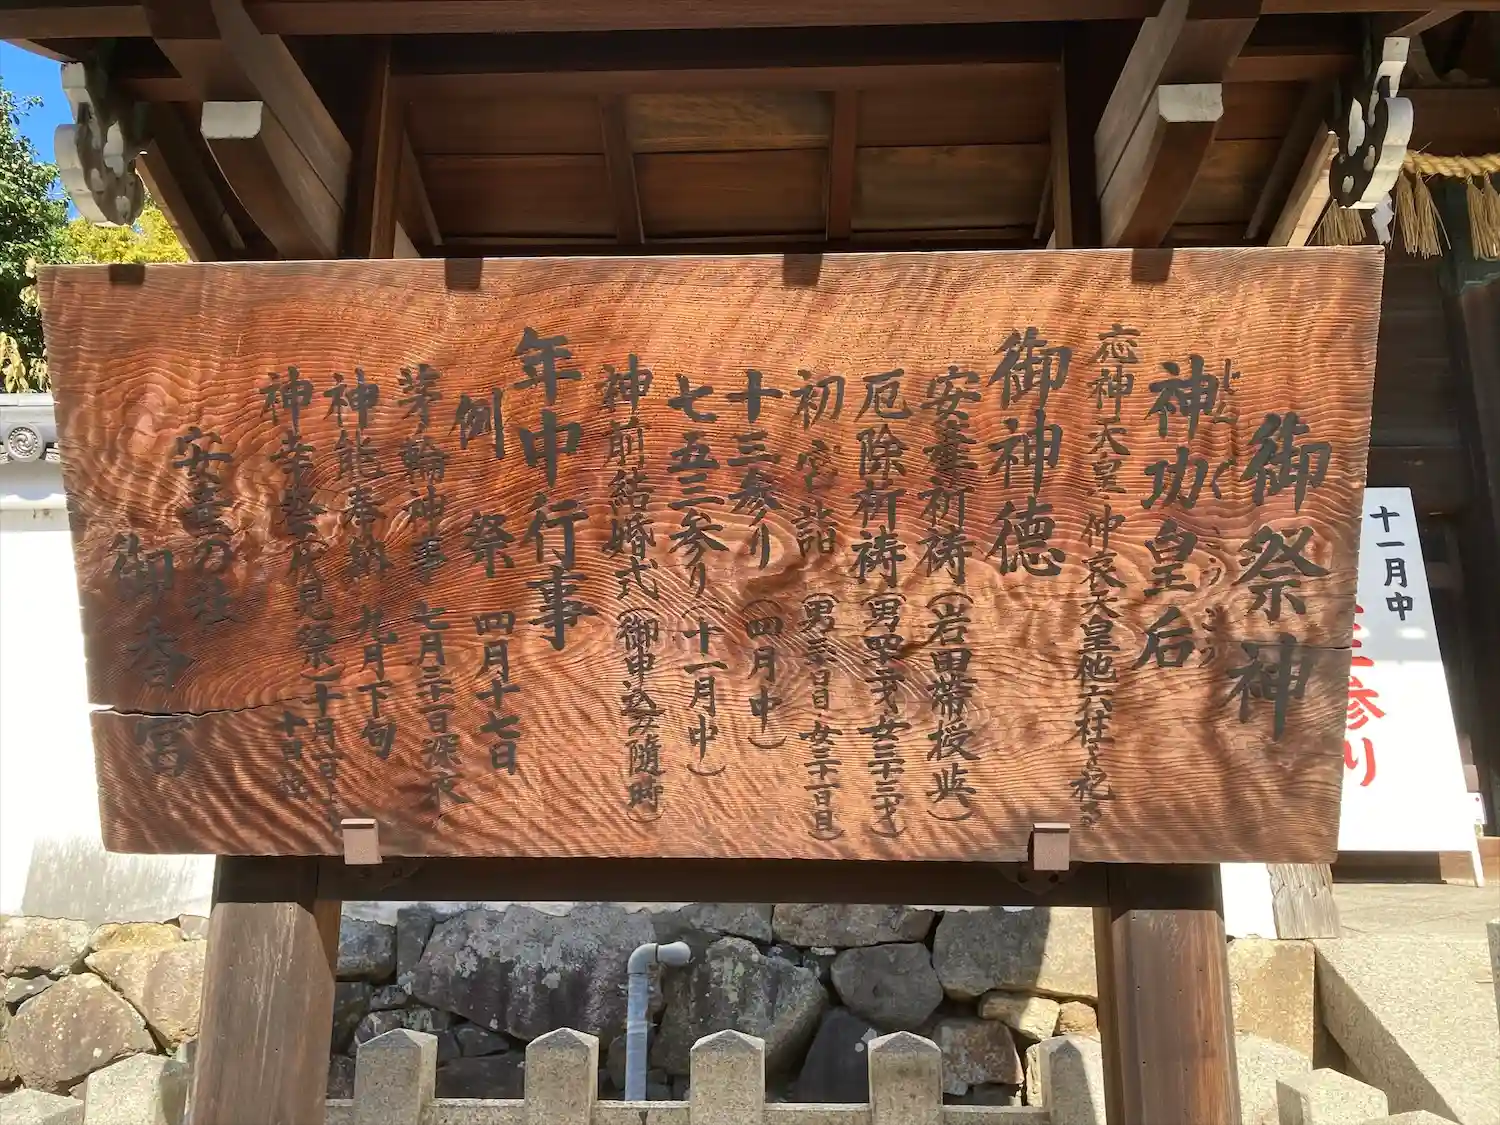 御祭神
神功皇后
じんぐうこうごう
応神天皇 仲哀天皇他六柱を祀る
御神徳
安産祈祷(岩田帯授与)
厄除祈祷(男四二才女三十三才)
初宮詣(男三十日目 女三十一日目)
十三参り(四月中)
七五三参り(十一月中)
神前結婚式(御申込み随時)
年中行事
例祭 四月十七日
茅輪神事 七月三十一日深夜
神能奉納 九月下旬
神幸祭(伏見祭)十月一日より
十日迄
安産の社
御香宮
十一月中
参り